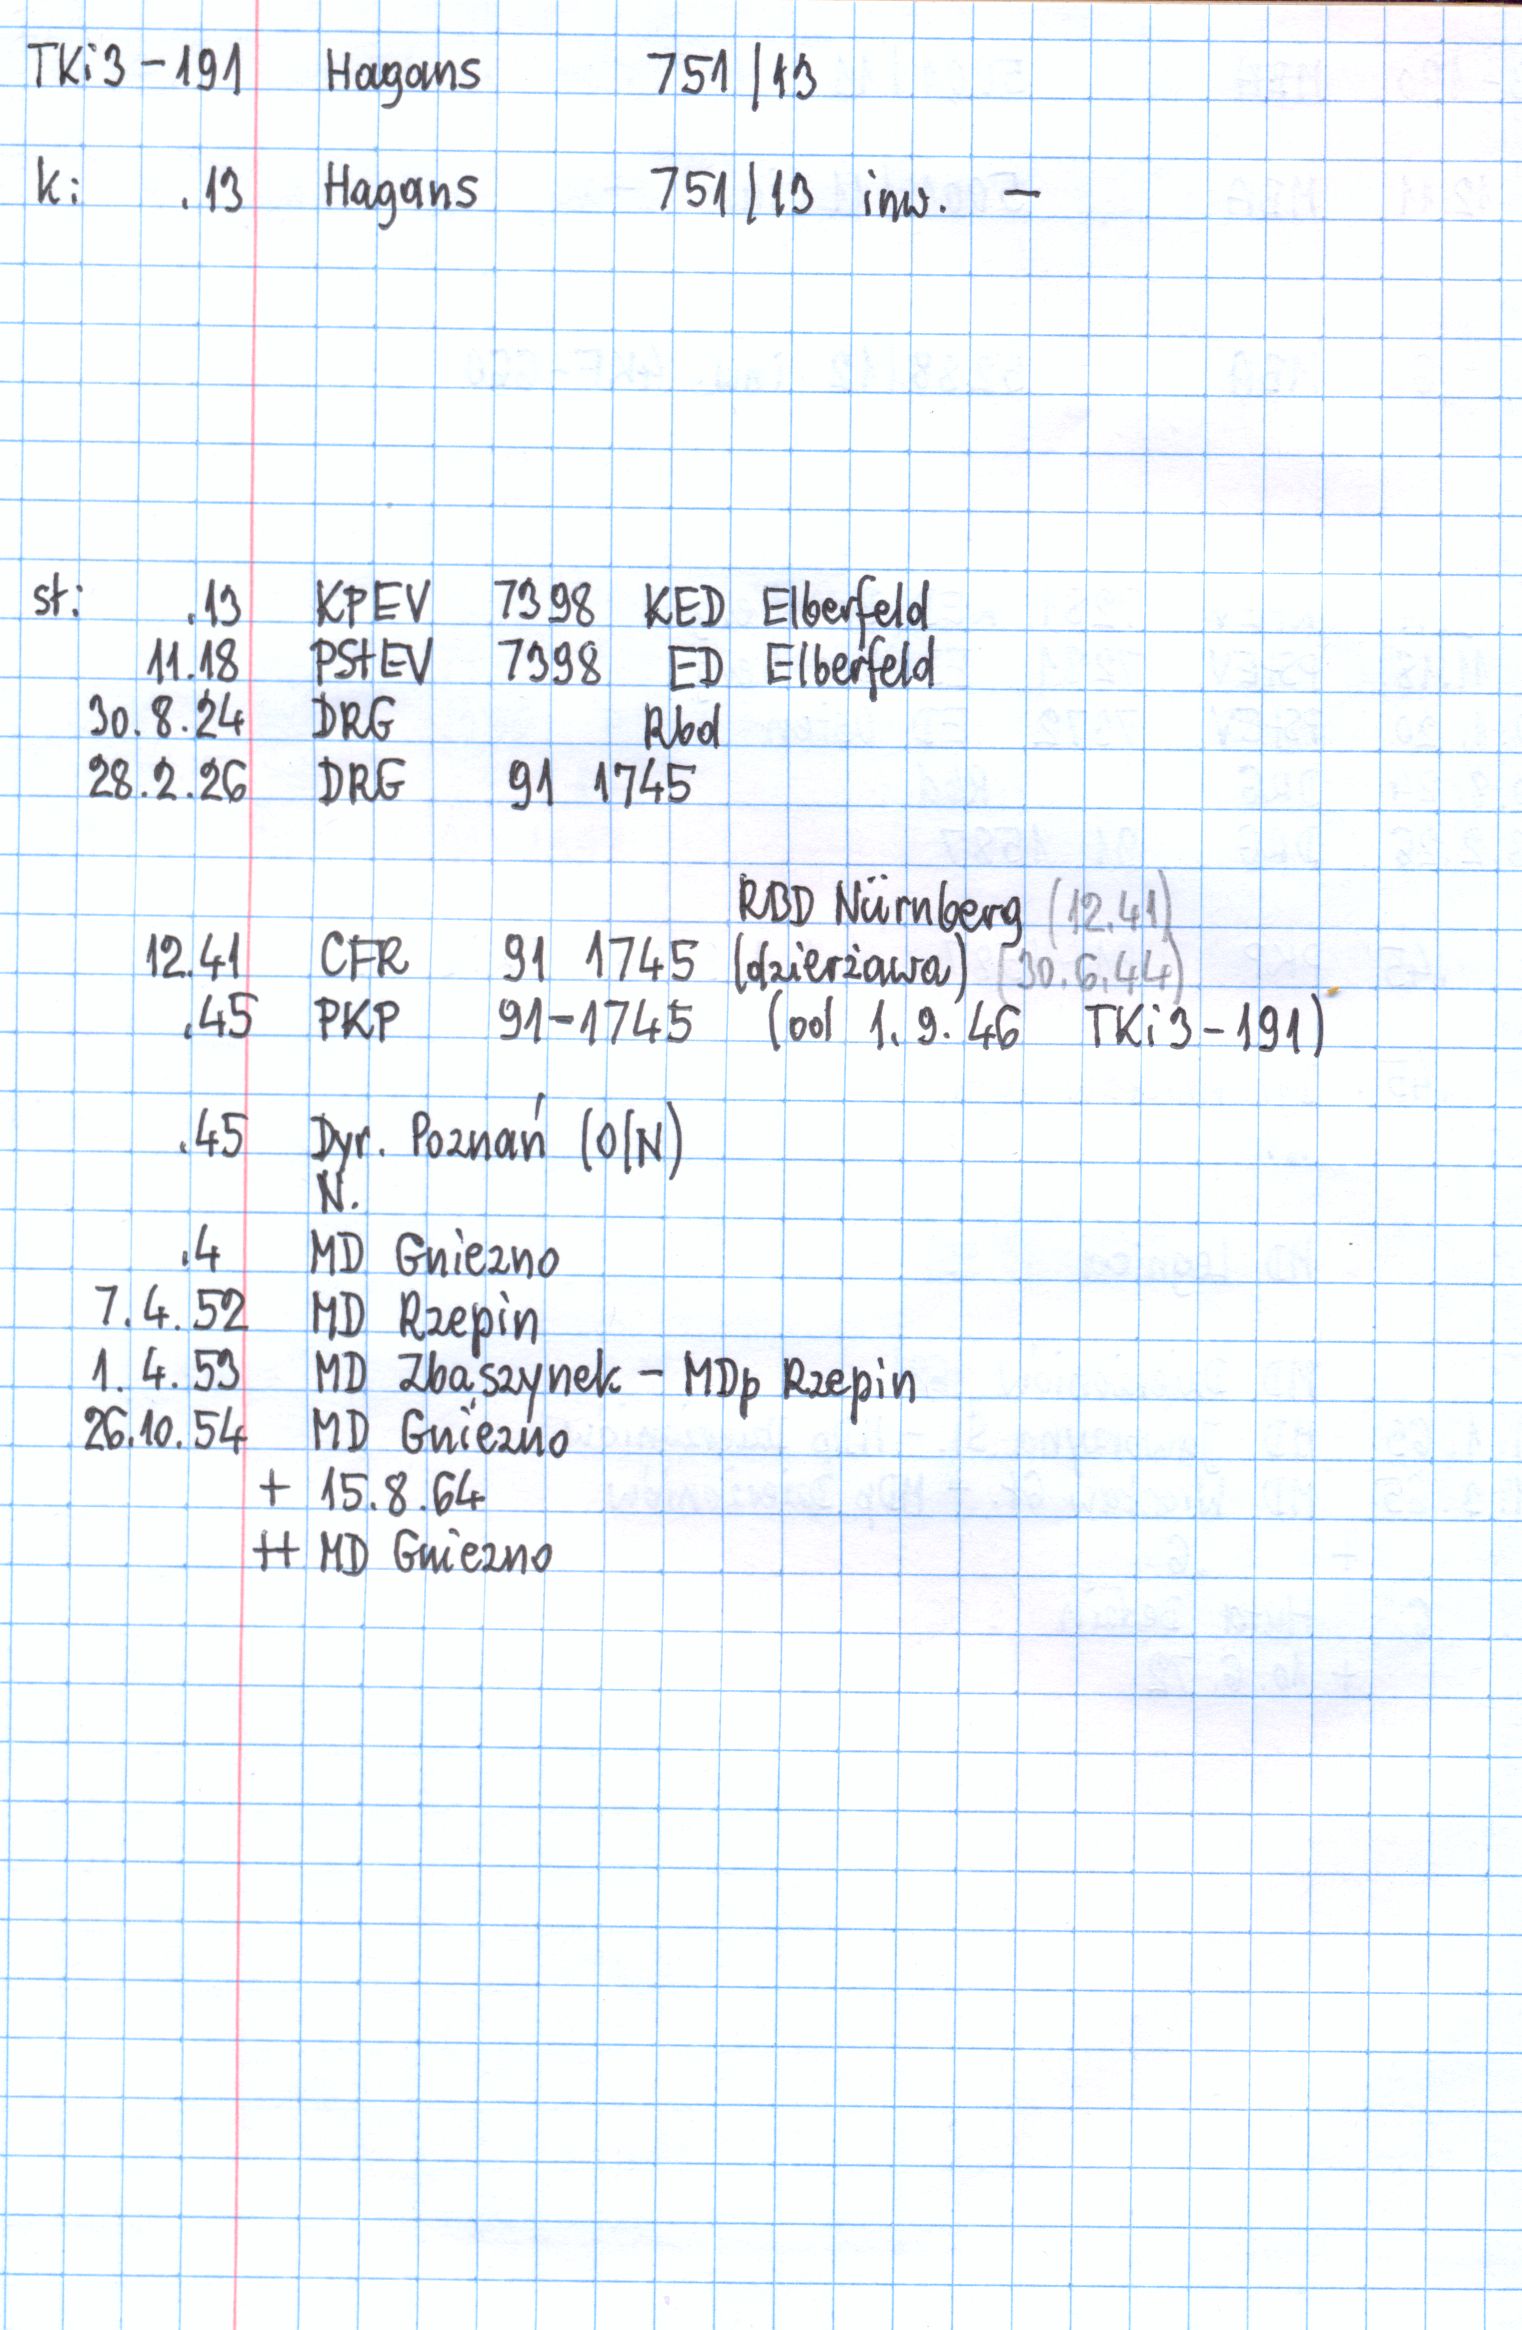 TKi3-191 Hagans 751/13
k: .13 Hagans 751/13 inw. -
st: .13 KPEV 7398 KED Elberfeld
11.18 PStEV 7398 ED Elberfeld
30.8.24 DRG Rbd
28.2.26 DRG 91 1745
RBD Nürnberg (12.41)
12.41 CFR 91 1745 (dzierżawa) (30.6.44)
.45 PKP 91-1745 (od 1.9.46 TKi3-191)
.45 Dyr. Poznań (O/N)
N.
.4 MD Gniezno
7.4.52 MD Rzepin
1.4.53 MD Zbąszynek - MDp Rzepin
26.10.54 MD Gniezno
+ 15.8.64
++ MD Gniezno